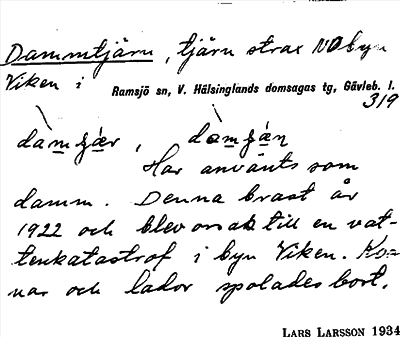 Dammtjärn, tjärn strax NO byn
Viken i Ramsjö sn, V. Hälsinglands domsagas tg, Gävleb. l.
319
Har använts som
damm. Denna brast år
1922 och blev orsak till en vat-
tenkatastrof i byn Viken. Kor-
nar och lador spolades bort.
LARS LARSSON 1934